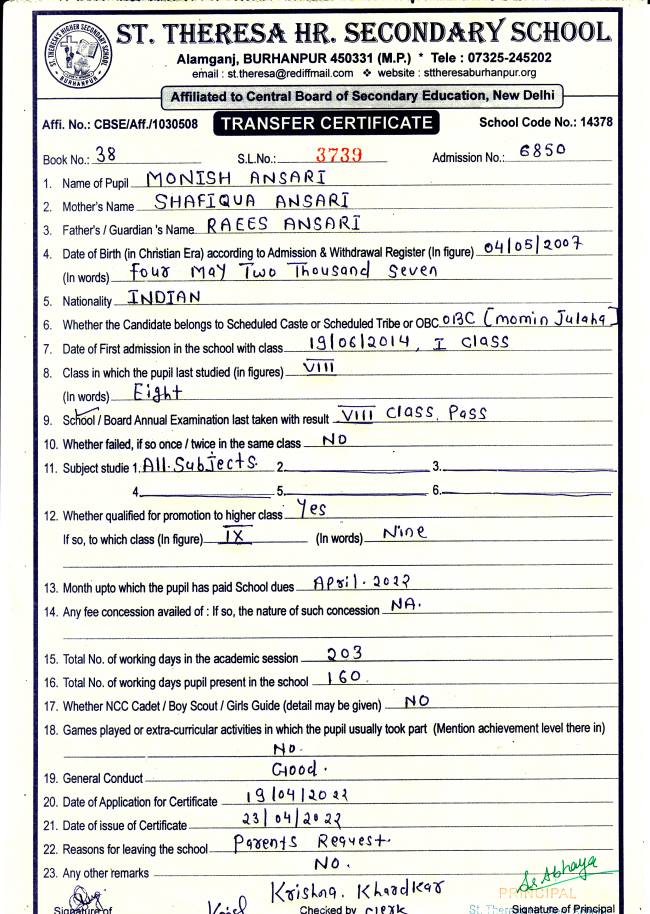 ST. THERESA HR. SECONDARY SCHOOL
Alamganj, BURHANPUR 450331 (M.P.) * Tele : 07325-245202
email : st.theresa@rediffmail.com ❖ website : sttheresaburhanpur.org
Affiliated to Central Board of Secondary Education, New Delhi
Affi. No.: CBSE/Aff./1030508 TRANSFER CERTIFICATE School Code No.: 14378
Book No.: 38 S.L.No.: 3739 Admission No.: 6850
1. Name of Pupil MONISH ANSARI
2. Mother's Name SHAFIQUA ANSARI
3. Father's / Guardian 's Name RAEES ANSARI
4. Date of Birth (in Christian Era) according to Admission & Withdrawal Register (In figure) 04/05/2007
(In words) four May Two Thousand Seven
5. Nationality INDIAN
6. Whether the Candidate belongs to Scheduled Caste or Scheduled Tribe or OBC OBC [Momin Julaha]
7. Date of First admission in the school with class 19/06/2014, I Class
8. Class in which the pupil last studied (in figures) VIII
(In words) Eight
9. School / Board Annual Examination last taken with result VIII Class, Pass
10. Whether failed, if so once / twice in the same class NO
11. Subject studie 1. All Subjects 2. 3.
4. 5. 6.
12. Whether qualified for promotion to higher class Yes
If so, to which class (In figure) IX (In words) Nine
13. Month upto which the pupil has paid School dues April. 2022
14. Any fee concession availed of : If so, the nature of such concession NA.
15. Total No. of working days in the academic session 203
16. Total No. of working days pupil present in the school 160
17. Whether NCC Cadet / Boy Scout / Girls Guide (detail may be given) NO
18. Games played or extra-curricular activities in which the pupil usually took part (Mention achievement level there in)
No.
19. General Conduct Good.
20. Date of Application for Certificate 19/04/2022
21. Date of issue of Certificate 23/04/2022
22. Reasons for leaving the school Parents Request.
23. Any other remarks NO.
Krishna. Khardkar
Sr Abhaya
PRINCIPAL
Signature of Checked by Clerk Signature of Principal